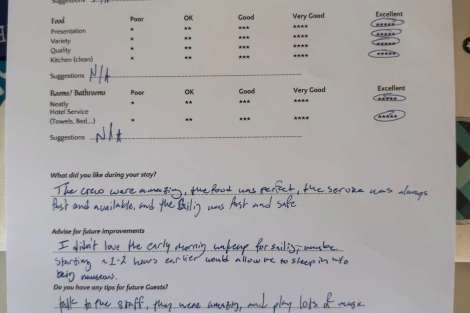 Food Poor OK Good Very Good Excellent
Presentation * ** *** **** *****
Variety * ** *** **** *****
Quality * ** *** **** *****
Kitchen (clean) * ** *** **** *****
Suggestions N/A
Rooms/ Bathrooms Poor OK Good Very Good Excellent
Neatly * ** *** **** *****
Hotel Service
(Towels, Bed,...) * ** *** **** *****
Suggestions N/A
What did you like during your stay?
The crew were amazing, the food was perfect, the service was always
fast and available, and the was fast and safe
Advise for future improvements
I didn't love the early morning wakeup for
starting ~1-2 hours earlier would allow me to sleep in w/o
being nauseous.
Do you have any tips for future Guests?
talk to the staff, they were amazing, and play lots of